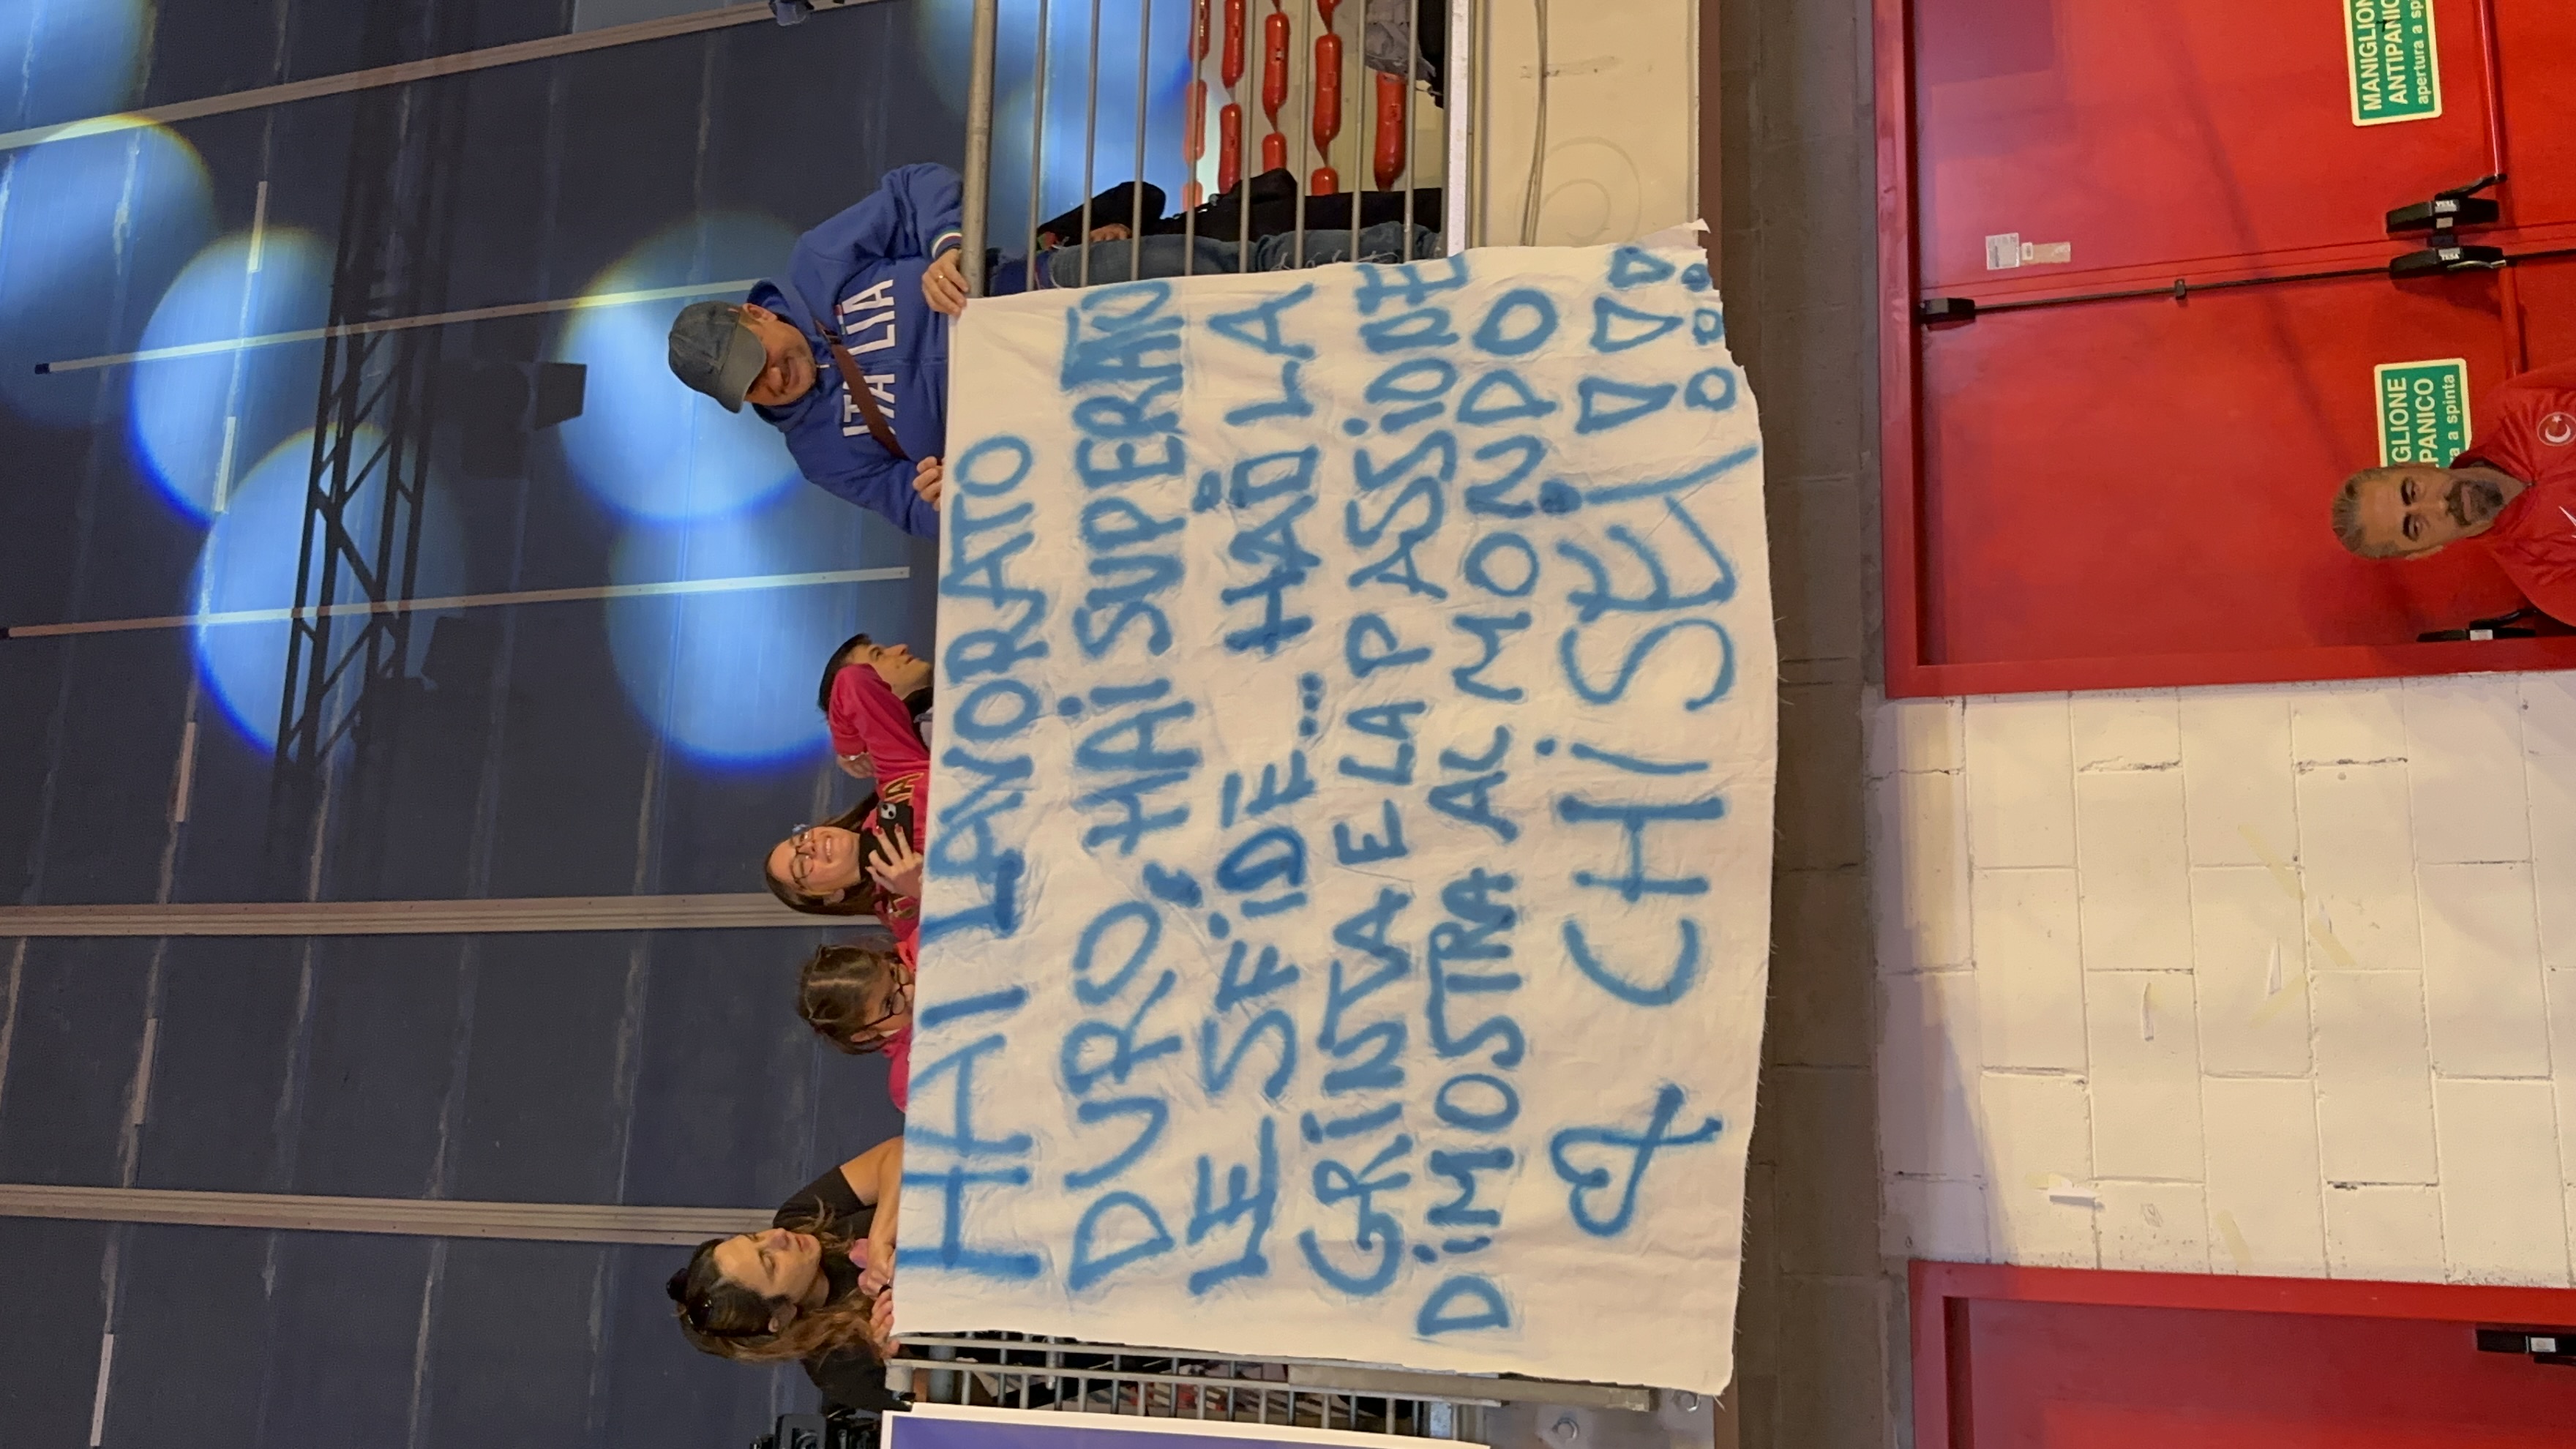 ITALIA
HAI LAVORATO
DURO, HAI SUPERATO
LE SFIDE... HAÖ LA
GRINTA E LA PASSIONE
DIMOSTRA AL MONDO
CHI SEI!!!
MANIGLIONE
ANTIPANICO
apertura a sp
GLIONE
PANICO
a spinta